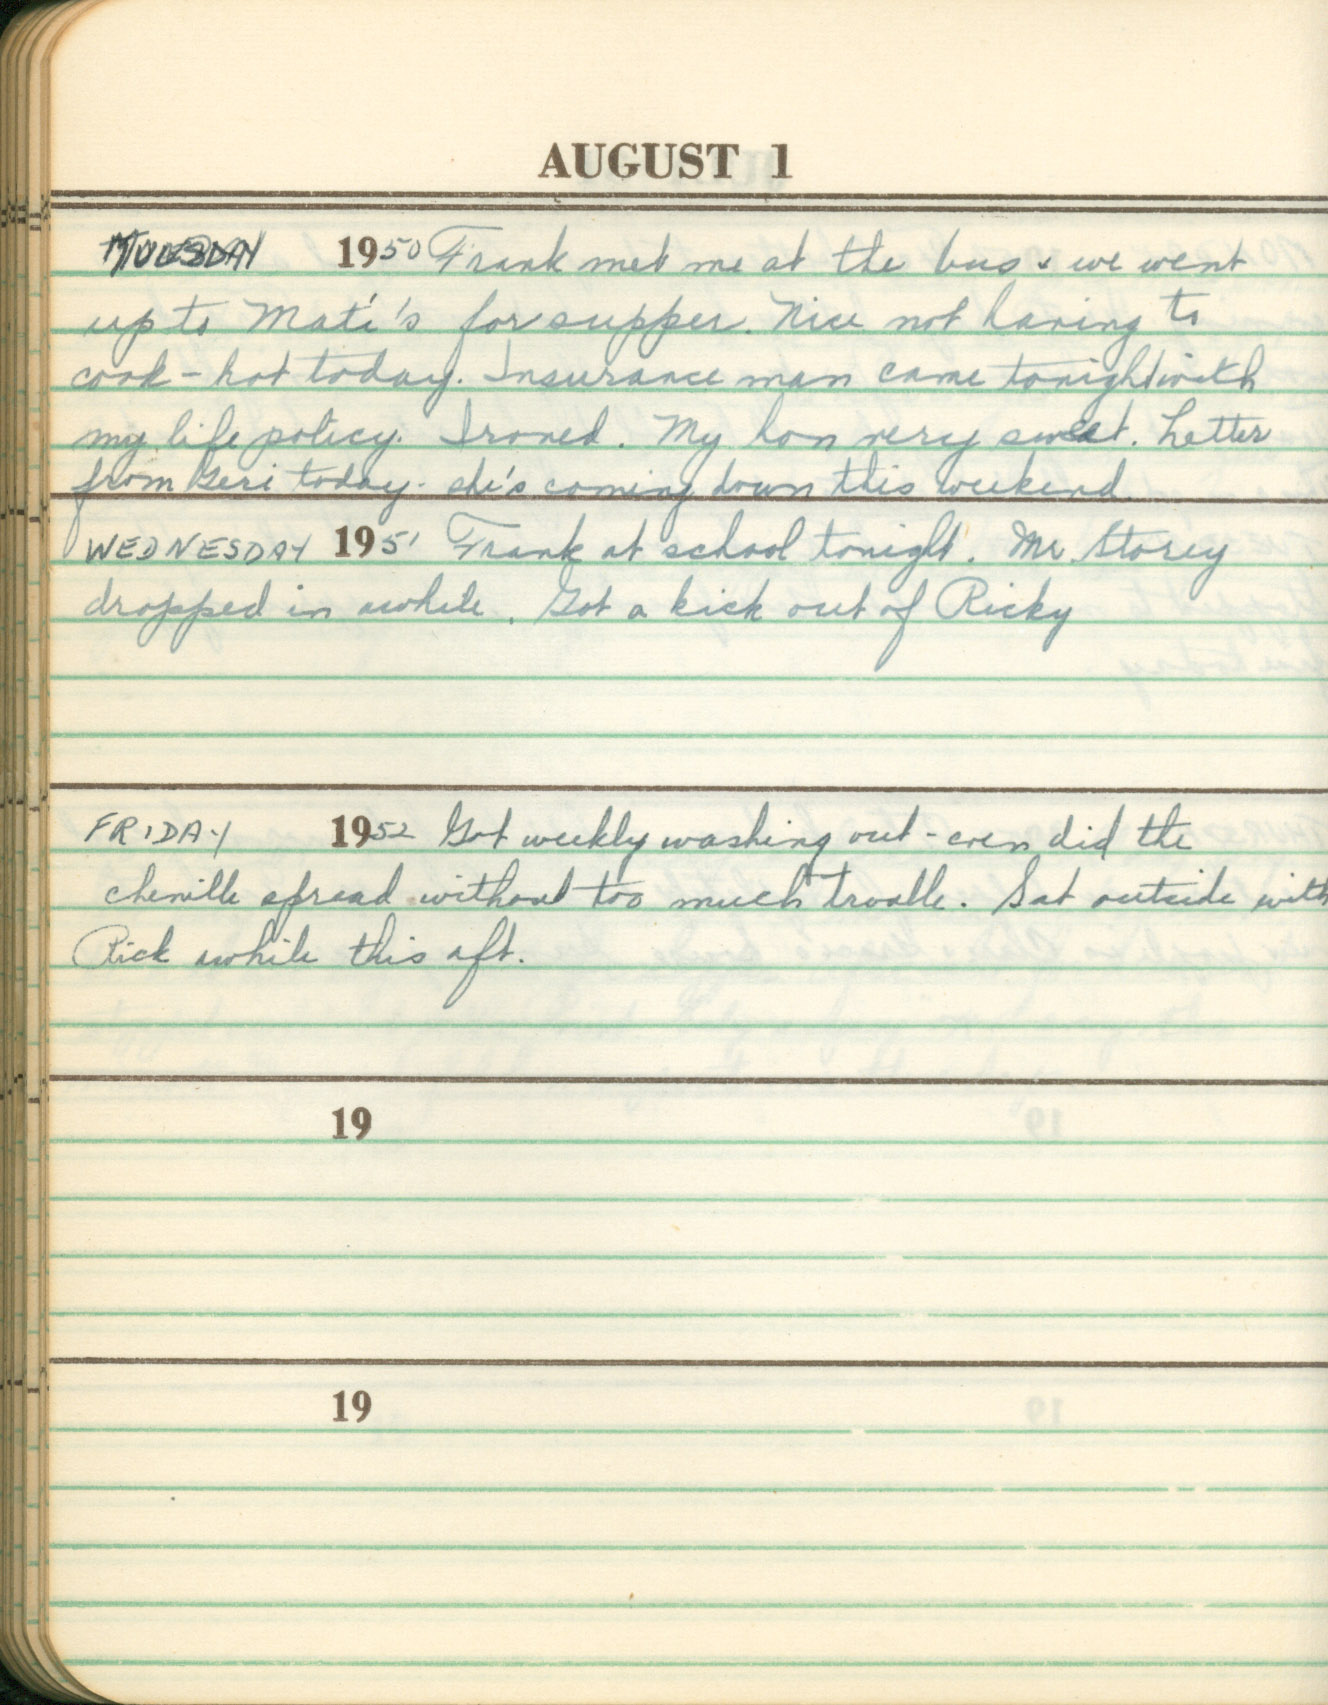 AUGUST 1
TUESDAY 1950 Frank met me at the bus & we went
up to Mati's for supper. Nice not having to
cook - hot today. Insurance man came tonight with
my life policy. Ironed. My hon very sweet. Letter
from Geri today. she's coming down this weekend
WEDNESDAY 1951 Frank at school tonight. Mr. Storey
dropped in awhile. Got a kick out of Ricky
FRIDAY 1952 Got weekly washing out - even did the
chenille spread without too much trouble. Sat outside with
Rick awhile this aft.
19
19